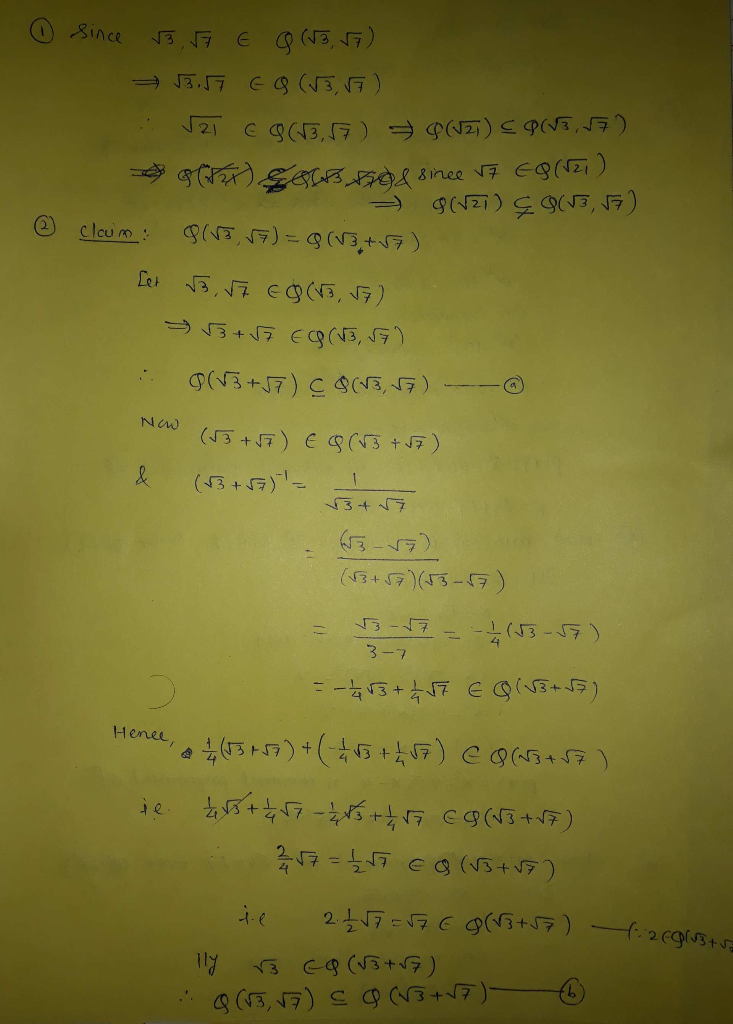 ① Since √3, √7 ∈ Q(√3, √7)
⇒ √3.√7 ∈ Q(√3, √7)
∴ √21 ∈ Q(√3, √7) ⇒ Q(√21) ⊆ Q(√3, √7)
⇒ & since √7 ∈ Q(√21)
⇒ Q(√21) ⊊ Q(√3, √7)
② Claim: Q(√3, √7) = Q(√3 + √7)
Let √3, √7 ∈ Q(√3, √7)
⇒ √3 + √7 ∈ Q(√3, √7)
∴ Q(√3 + √7) ⊆ Q(√3, √7) — ⓐ
Now (√3 + √7) ∈ Q(√3 + √7)
& (√3 + √7)⁻¹ = 1 / (√3 + √7)
= (√3 - √7) / (√3 + √7)(√3 - √7)
= (√3 - √7) / (3 - 7) = -1/4 (√3 - √7)
= -1/4 √3 + 1/4 √7 ∈ Q(√3 + √7)
Hence, 1/4 (√3 + √7) + (-1/4 √3 + 1/4 √7) ∈ Q(√3 + √7)
i.e. 1/4 √3 + 1/4 √7 - 1/4 √3 + 1/4 √7 ∈ Q(√3 + √7)
2/4 √7 = 1/2 √7 ∈ Q(√3 + √7)
i.e 2.1/2 √7 = √7 ∈ Q(√3 + √7) — (∵ 2 ∈ Q(√3 + √7
lly √3 ∈ Q(√3 + √7)
∴ Q(√3, √7) ⊆ Q(√3 + √7) — ⓑ